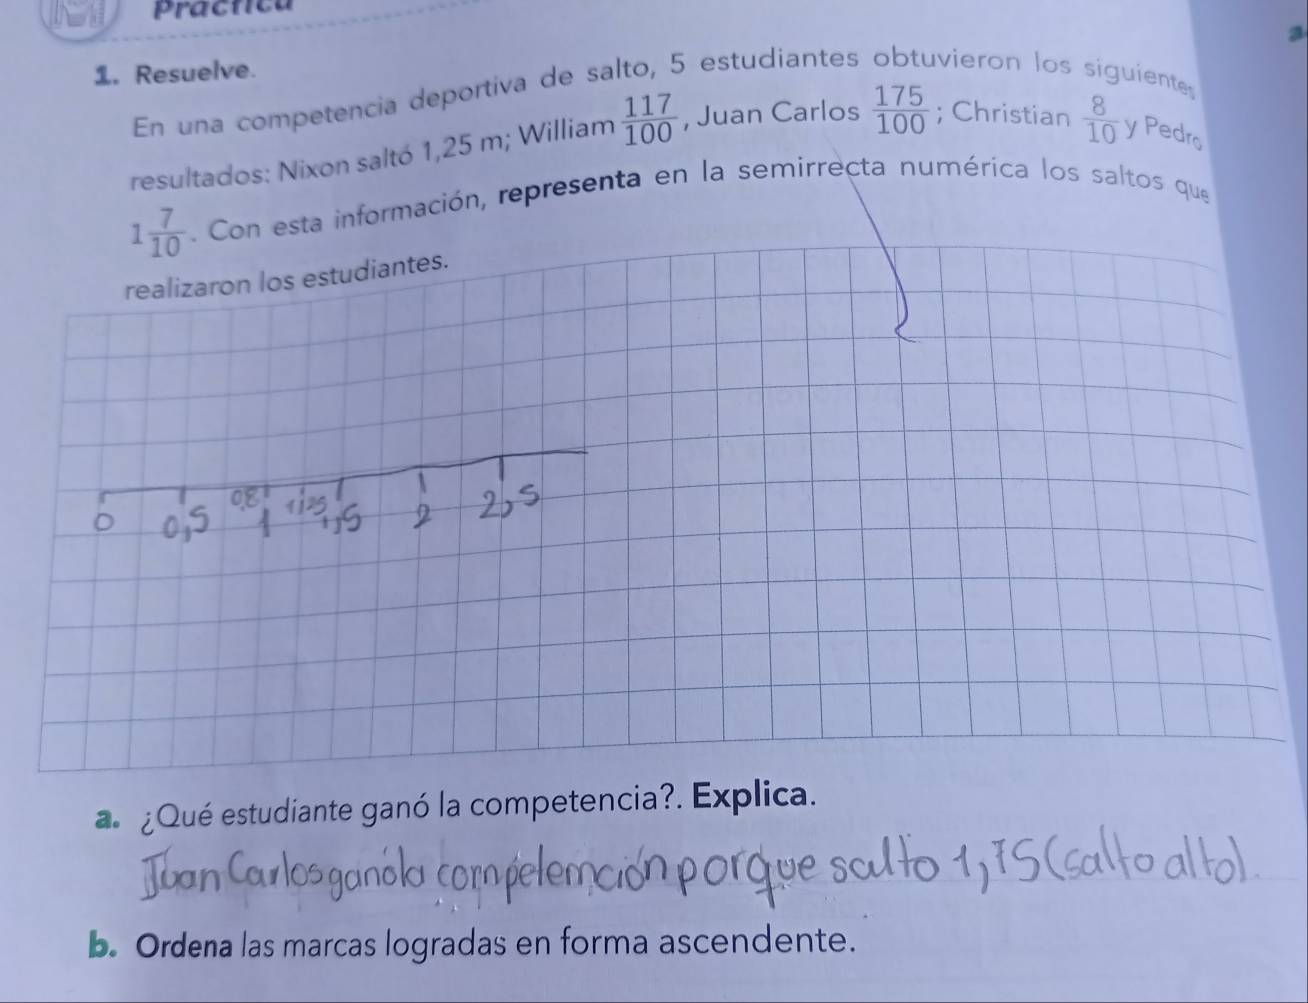 Práctica
1. Resuelve.
En una competencia deportiva de salto, 5 estudiantes obtuvieron los siguientes
resultados: Nixon saltó 1,25 m; William 117/100, Juan Carlos 175/100; Christian 8/10 y Pedro
1 7/10. Con esta información, representa en la semirrecta numérica los saltos que
realizaron los estudiantes.
0 0,5 0,8 1 1,25 1,5 2 2,5
a. ¿Qué estudiante ganó la competencia?. Explica.
Juan Carlos ganó la competención porque salto 1,75 (salto alto).
b. Ordena las marcas logradas en forma ascendente.